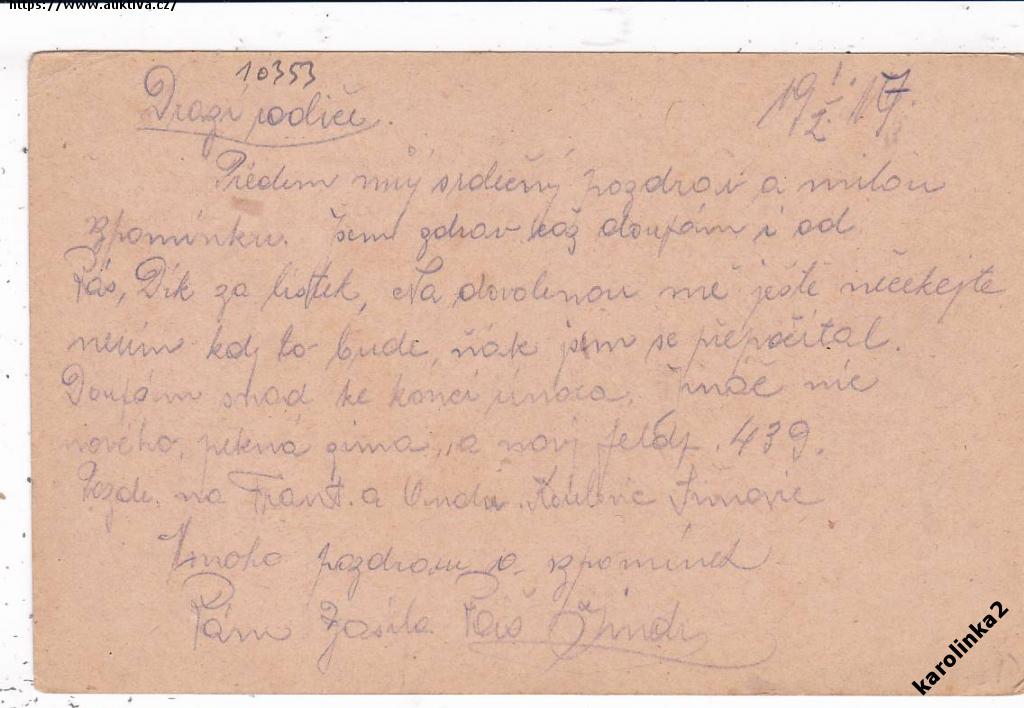 https://www.auktiva.cz/
10353
Drazí rodiče. 19 I. 17.
Předem můj srdečný pozdrav a milou
vzpomínku. Jsem zdráv což doufám i od
Vás, Dík za lístek, Na dovolenou mě ještě nečekejte
nevím kdy to bude, ňák jsem se přepočítal.
Doufám snad ke konci února. Jinač nic
nového, pěkná zima, a nový feldp. 439.
Pozdr. na Frant. a
Mnoho pozdravu a vzpomínek
Vám Zasílá Váš
karolinka2